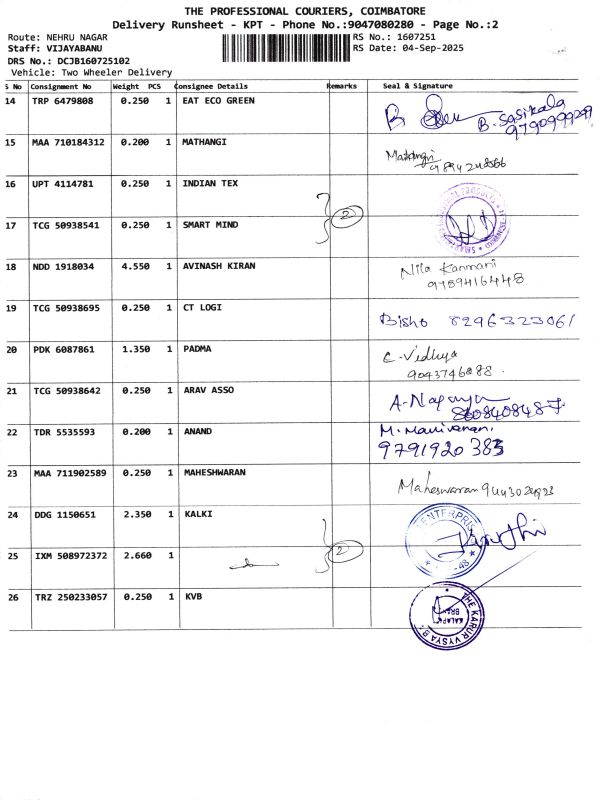 THE PROFESSIONAL COURIERS, COIMBATORE
Delivery Runsheet - KPT - Phone No.:9047080280 - Page No.:2
Route: NEHRU NAGAR RS No.: 1607251
Staff: VIJAYABANU RS Date: 04-Sep-2025
DRS No.: DCJB160725102
Vehicle: Two Wheeler Delivery
S No Consignment No Weight PCS Consignee Details Remarks Seal & Signature
14 TRP 6479808 0.250 1 EAT ECO GREEN B. Sasikala
15 MAA 710184312 0.200 1 MATHANGI Mathangi
16 UPT 4114781 0.250 1 INDIAN TEX
2
17 TCG 50938541 0.250 1 SMART MIND
18 NDD 1918034 4.550 1 AVINASH KIRAN Nila Kanmani
9789416448
19 TCG 50938695 0.250 1 CT LOGI Bisho 8296323061
20 PDK 6087861 1.350 1 PADMA C-Vidhya
21 TCG 50938642 0.250 1 ARAV ASSO
22 TDR 5535593 0.200 1 ANAND
9791920383
23 MAA 711902589 0.250 1 MAHESHWARAN Maheswaran
24 DDG 1150651 2.350 1 KALKI ENTERPRIS
2
25 IXM 508972372 2.660 1
26 TRZ 250233057 0.250 1 KVB THE KARUR VYSYA